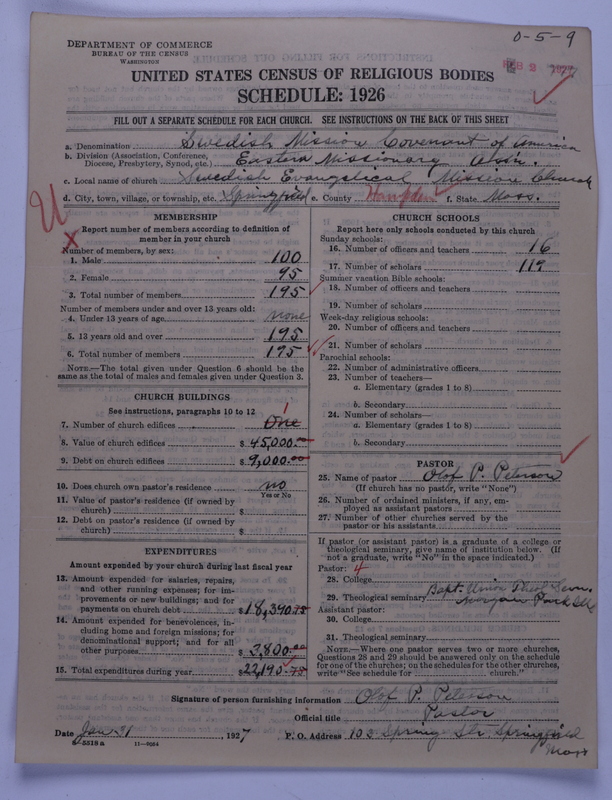 DEPARTMENT OF COMMERCE
BUREAU OF THE CENSUS
WASHINGTON
0-5-9
FEB 2 1927
UNITED STATES CENSUS OF RELIGIOUS BODIES
SCHEDULE: 1926
FILL OUT A SEPARATE SCHEDULE FOR EACH CHURCH. SEE INSTRUCTIONS ON THE BACK OF THIS SHEET
a. Denomination Swedish Mission Covenant of America
b. Division (Association, Conference, Diocese, Presbytery, Synod, etc.) Eastern Missionary Assn.
c. Local name of church Swedish Evangelical Mission Church
d. City, town, village, or township, etc. Springfield e. County Hampden f. State Mass.
MEMBERSHIP
Report number of members according to definition of
member in your church
Number of members, by sex:
1. Male 100
2. Female 95
3. Total number of members 195
Number of members under and over 13 years old:
4. Under 13 years of age none
5. 13 years old and over 195
6. Total number of members 195
NOTE.—The total given under Question 6 should be
same as the total of males and females given under Question 3.
CHURCH BUILDINGS
See instructions, paragraphs 10 to 12
1
7. Number of church edifices One
8. Value of church edifices $ 45,000.00
9. Debt on church edifices $ 9,000.00
10. Does church own pastor's residence? no
Yes or No
11. Value of pastor's residence (if owned by
church) $
12. Debt on pastor's residence (if owned by
church) $
EXPENDITURES
Amount expended by your church during last fiscal year
13. Amount expended for salaries, repairs,
and other running expenses; for im-
provements or new buildings; and for
payments on church debt $ 18,390.78
14. Amount expended for benevolences, in-
cluding home and foreign missions; for
denominational support; and for all
other purposes $ 3,800.00
15. Total expenditures during year $ 22,190.78
CHURCH SCHOOLS
Report here only schools conducted by this church
Sunday schools:
16. Number of officers and teachers 16
17. Number of scholars 119
Summer vacation Bible schools:
18. Number of officers and teachers
19. Number of scholars
Week-day religious schools:
20. Number of officers and teachers
21. Number of scholars
Parochial schools:
22. Number of administrative officers
23. Number of teachers—
a. Elementary (grades 1 to 8)
b. Secondary
24. Number of scholars—
a. Elementary (grades 1 to 8)
b. Secondary
PASTOR
25. Name of pastor Olof P. Peterson
(If church has no pastor, write "None")
26. Number of ordained ministers, if any, em-
ployed as assistant pastors
27. Number of other churches served by the
pastor or his assistants
If pastor (or assistant pastor) is a graduate of a college or
theological seminary, give name of institution below. (If
not a graduate, write "No" in the space indicated.)
Pastor: 4
28. College
29. Theological seminary Bapt. Union Theol Sem.
Morgan Park Ill
Assistant pastor:
30. College
31. Theological seminary
NOTE.—Where one pastor serves two or more churches,
Questions 28 and 29 should be answered only on the schedule
for one of the churches; on the schedules for the other churches,
write "See schedule for church."
Signature of person furnishing information Olof P. Peterson
Official title Pastor
Date Jan 31, 1927 P. O. Address 103 Spring Str. Springfield
Mass
5318 a 11—9264